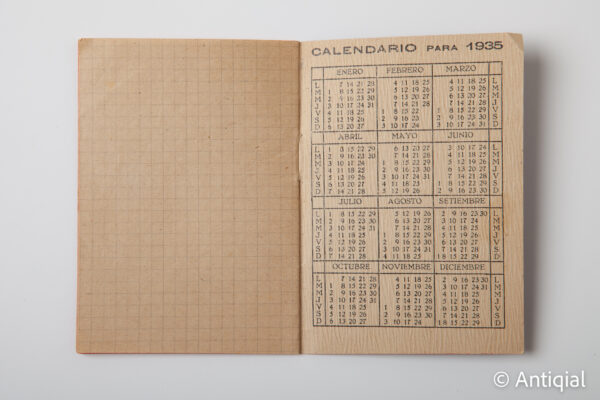 CALENDARIO PARA 1935
ENERO FEBRERO MARZO
L 7 14 21 28 4 11 18 25 4 11 18 25 L
M 1 8 15 22 29 5 12 19 26 5 12 19 26 M
M 2 9 16 23 30 6 13 20 27 6 13 20 27 M
J 3 10 17 24 31 7 14 21 28 7 14 21 28 J
V 4 11 18 25 1 8 15 22 1 8 15 22 29 V
S 5 12 19 26 2 9 16 23 2 9 16 23 30 S
D 6 13 20 27 3 10 17 24 3 10 17 24 31 D
ABRIL MAYO JUNIO
L 1 8 15 22 29 6 13 20 27 3 10 17 24 L
M 2 9 16 23 30 7 14 21 28 4 11 18 25 M
M 3 10 17 24 1 8 15 22 29 5 12 19 26 M
J 4 11 18 25 2 9 16 23 30 6 13 20 27 J
V 5 12 19 26 3 10 17 24 31 7 14 21 28 V
S 6 13 20 27 4 11 18 25 1 8 15 22 29 S
D 7 14 21 28 5 12 19 26 2 9 16 23 30 D
JULIO AGOSTO SETIEMBRE
L 1 8 15 22 29 5 12 19 26 2 9 16 23 30 L
M 2 9 16 23 30 6 13 20 27 3 10 17 24 M
M 3 10 17 24 31 7 14 21 28 4 11 18 25 M
J 4 11 18 25 1 8 15 22 29 5 12 19 26 J
V 5 12 19 26 2 9 16 23 30 6 13 20 27 V
S 6 13 20 27 3 10 17 24 31 7 14 21 28 S
D 7 14 21 28 4 11 18 25 1 8 15 22 29 D
OCTUBRE NOVIEMBRE DICIEMBRE
L 7 14 21 28 4 11 18 25 2 9 16 23 30 L
M 1 8 15 22 29 5 12 19 26 3 10 17 24 31 M
M 2 9 16 23 30 6 13 20 27 4 11 18 25 M
J 3 10 17 24 31 7 14 21 28 5 12 19 26 J
V 4 11 18 25 1 8 15 22 29 6 13 20 27 V
S 5 12 19 26 2 9 16 23 30 7 14 21 28 S
D 6 13 20 27 3 10 17 24 1 8 15 22 29 D
© Antiqial